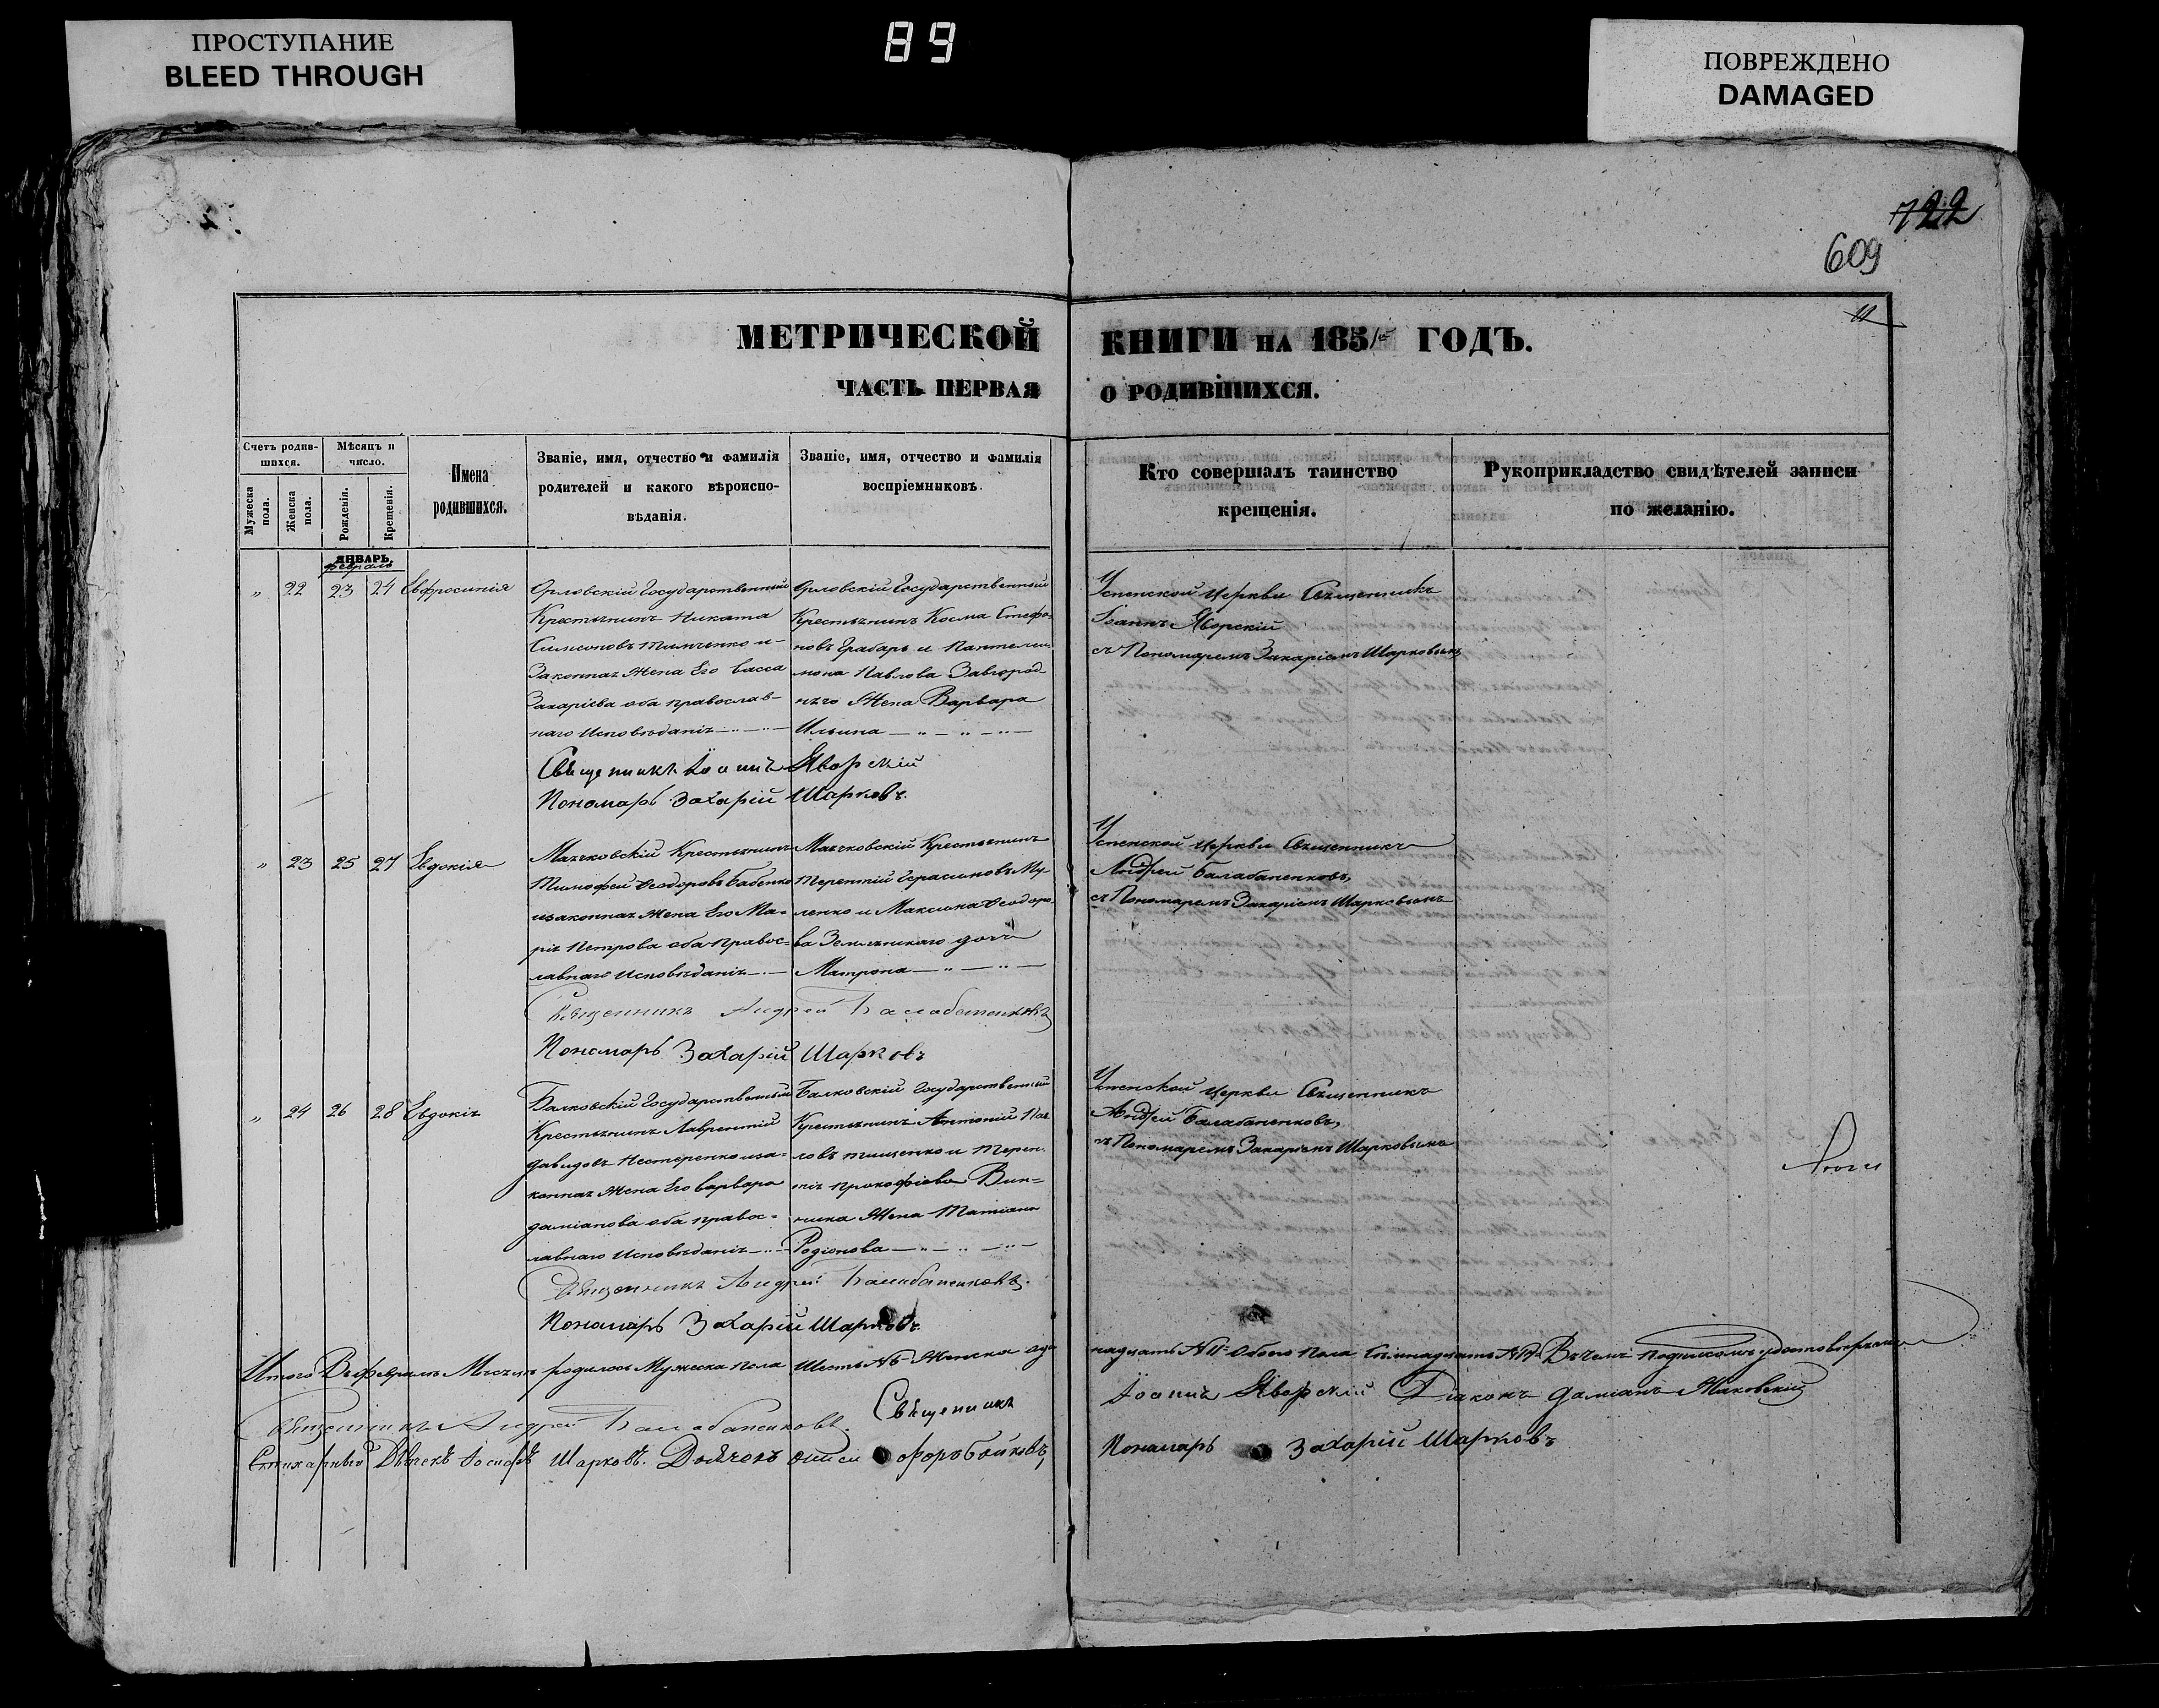 ПРОСТУПАНИЕ
BLEED THROUGH
89
ПОВРЕЖДЕНО
DAMAGED
722
609
11
МЕТРИЧЕСКОЙ КНИГИ НА 1851 ГОДЪ.
ЧАСТЬ ПЕРВАЯ О РОДИВШИХСЯ.
Счетъ родив-
шихся.
Мужеска пола.
Женска пола.
Мѣсяцъ и
число.
Рожденія.
Крещенія.
Имена
родившихся.
Званіе, имя, отчество и фамилія
родителей и какого вѣроиспо-
вѣданія.
Званіе, имя, отчество и фамилія
воспріемниковъ.
Кто совершалъ таинство
крещенія.
Рукоприкладство свидѣтелей записи
по желанію.
ЯНВАРЬ.
февраль
" 22 23 24 Евфросинія
Орловскій Государственный
Крестьянинъ Никита
Симеоновъ Тимченко и
Законная Жена Его Васса
Захаріева оба православ-
наго Исповѣданія
Орловскій Государственный
Крестьянинъ Косма Стефа-
новъ Грабарь и Пантелеи-
мона Павлова Завгород-
няго Жена Варвара
Ильина
Успенской Церкви Священникъ
Іоаннъ Яворскій
съ Пономаремъ Захаріемъ Шарковымъ
Священникъ Іоаннъ Яворскій
Пономарь Захарій Шарковъ.
" 23 25 27 Евдокія
Маячковскій Крестьянинъ
Тимофей Феодоровъ Бабенко
и законная Жена Его Ма-
рія Петрова оба правос-
лавнаго Исповѣданія
Маячковскій Крестьянинъ
Терентій Герасимовъ Му-
ленко и Максима Феодоро-
ва Землянскаго дочь
Матрона
Успенской Церкви Священникъ
Андрей Балабаненковъ,
съ Пономаремъ Захаріемъ Шарковымъ
Священникъ Андрей Балабаненковъ
Пономарь Захарій Шарковъ
" 24 26 28 Евдокія
Балковскій Государственный
Крестьянинъ Лаврентій
Давидовъ Нестеренко и за-
конная Жена Его Варвара
Даміанова оба правос-
лавнаго Исповѣданія
Балковскій Государственный
Крестьянинъ Антоній Пав-
ловъ Тищенко и Терен-
тія Прокофіева Вин-
ника Жена Татіана
Родіонова
Успенской Церкви Священникъ
Андрей Балабаненковъ,
съ Пономаремъ Захаріемъ Шарковымъ
Священникъ Андрей Балабаненковъ.
Пономарь Захарій Шарковъ.
Итого Въ февралѣ Мѣсяцѣ родилось Мужеска пола Шесть №6 Женска оди-
надцать №11 Обоего пола Семнадцать №17 Въ чемъ подписомъ удостовѣряемъ
Священникъ Андрей Балабаненковъ. Священникъ Іоаннъ Яворскій Діаконъ Даміанъ Маковскій
Стихарный Дьячекъ Іосифъ Шарковъ. Дьячокъ Воробойковъ, Пономарь Захарій Шарковъ